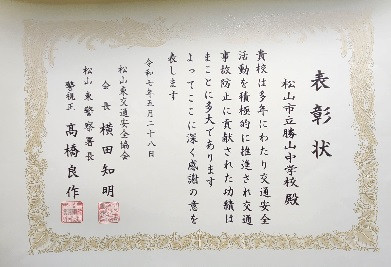 表彰状
松山市立勝山中学校 殿
貴校は多年にわたり交通安全
活動を積極的に推進され交通
事故防止に貢献された功績は
まことに多大であります
よってここに深く感謝の意を
表します
令和七年五月二十八日
松山東交通安全協会
会長 横田知明
松山東警察署長
警視正 高橋良作